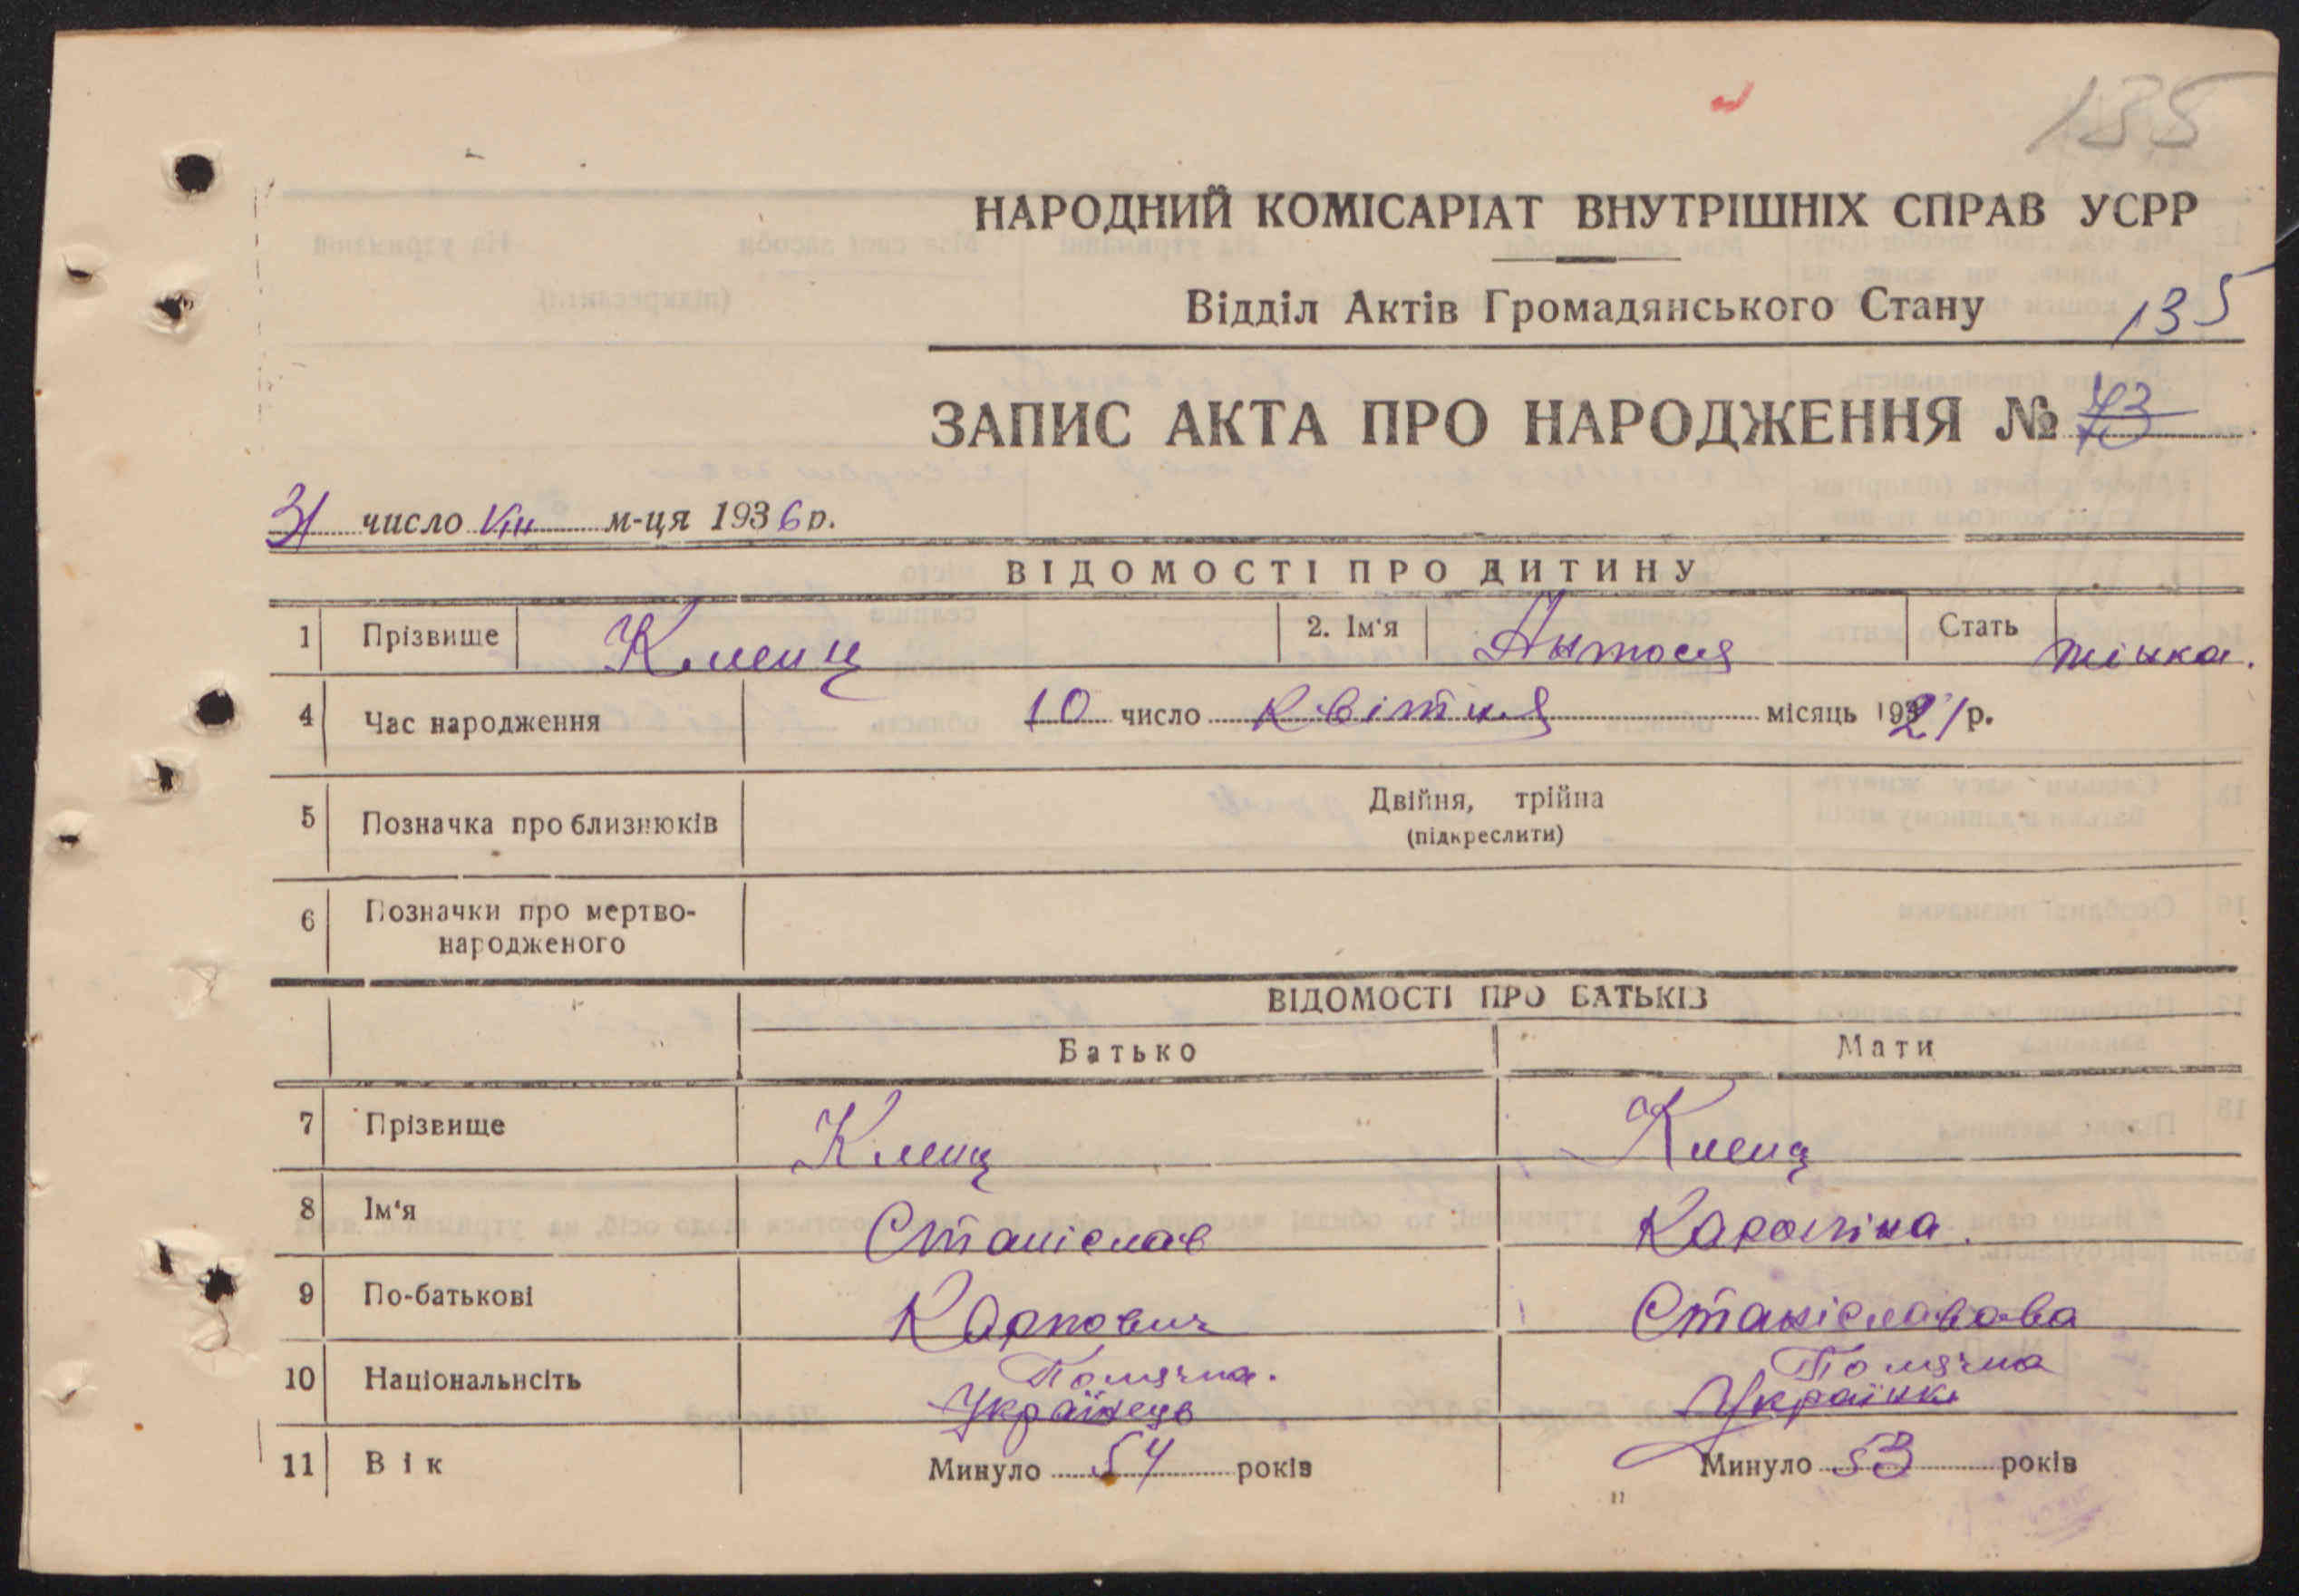 135
НАРОДНИЙ КОМІСАРІАТ ВНУТРІШНІХ СПРАВ УСРР
Відділ Актів Громадянського Стану 135
ЗАПИС АКТА ПРО НАРОДЖЕННЯ № 73
31 число VIII м-ця 1936 р.
ВІДОМОСТІ ПРО ДИТИНУ
1 Прізвище Кленц 2. Ім'я Антося Стать жінка.
4 Час народження 10 число квітня місяць 1921 р.
5 Позначка про близнюків Двійня, трійна
(підкреслити)
6 Позначки про мертво-
народженого
ВІДОМОСТІ ПРО БАТЬКІВ
Батько Мати
7 Прізвище Кленц Кленц
8 Ім'я Станіслав Кароліна.
9 По-батькові Карпович Станіславова
Полячка. Полячка
10 Національнсіть Українець Українка
11 Вік Минуло 54 років Минуло 53 років